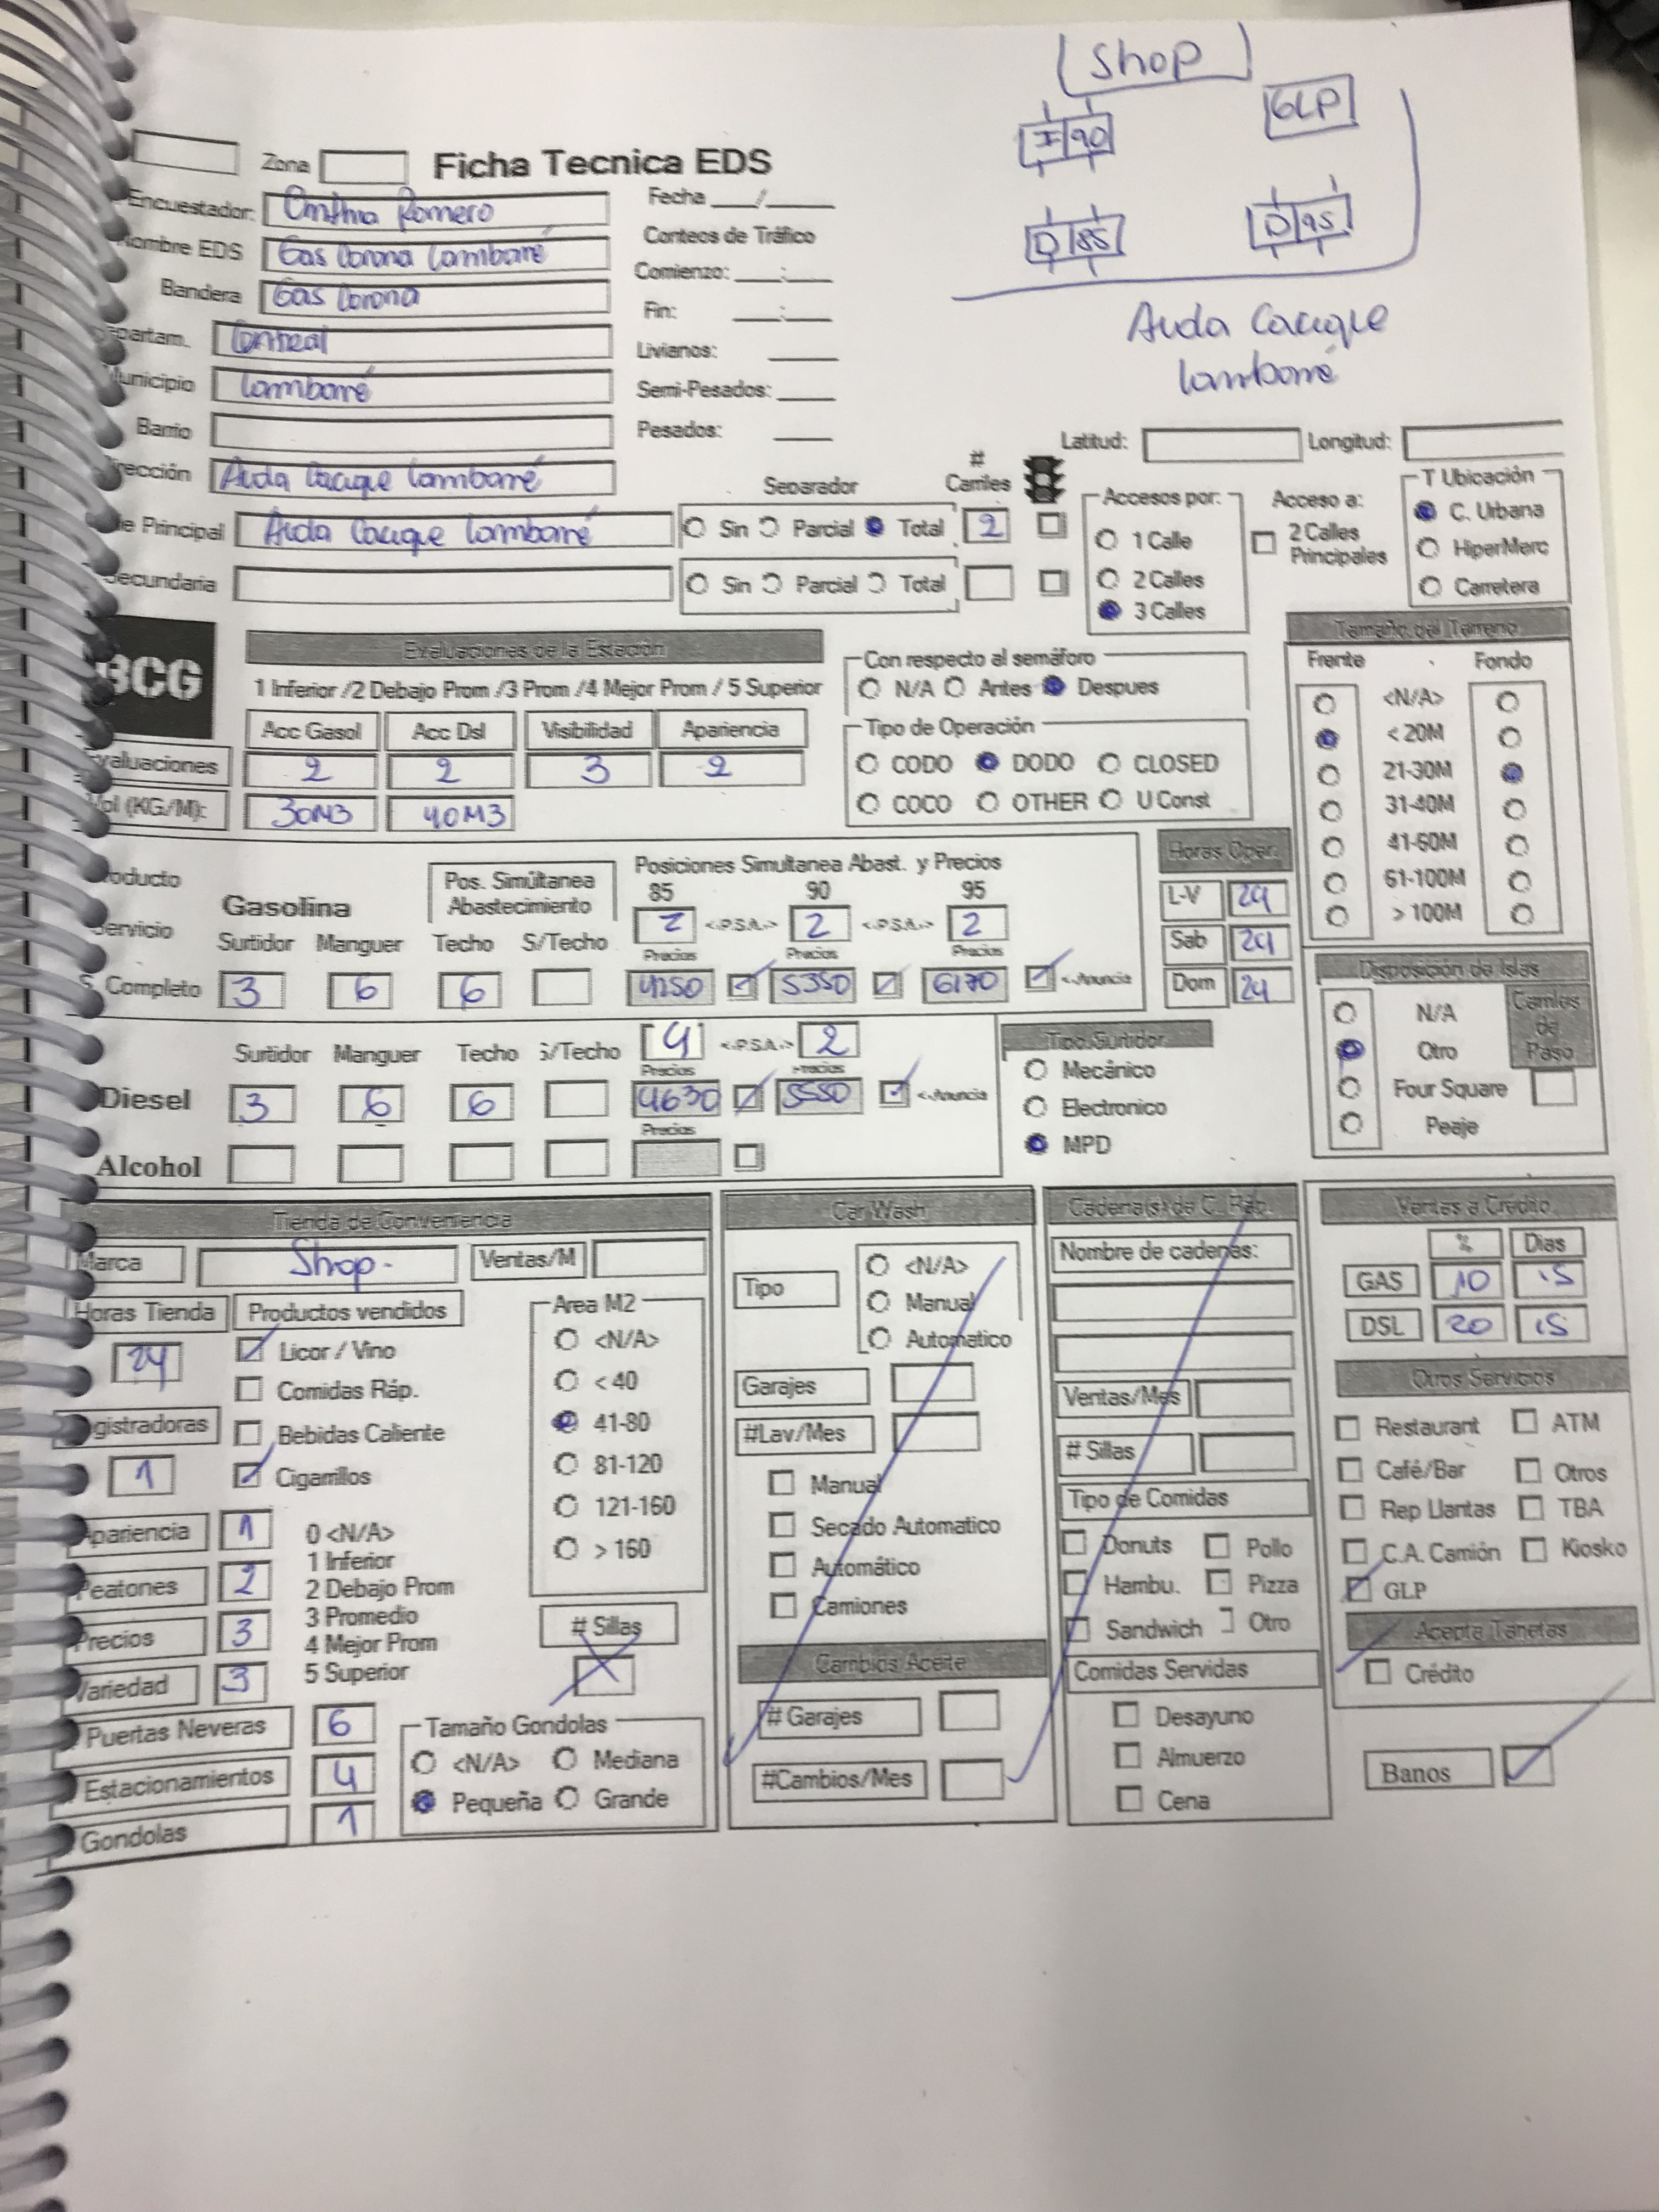 Shop
I 90
GLP
D 85
D 95
Avda Cacique
Lambaré
Zona
Ficha Tecnica EDS
Encuestador: Cinthia Romero
Fecha ___/___
Nombre EDS Gas Corona Lambaré
Conteos de Tráfico
Bandera Gas Corona
Comienzo: ___:___
Fin: ___:___
Departam. Central
Livianos: ___
Municipio Lambaré
Semi-Pesados: ___
Barrio
Pesados: ___
Latitud: Longitud:
Dirección Avda Cacique Lambaré
Separador # Carriles
Accesos por: Acceso a: T Ubicación
Principal Avda Cacique Lambaré Sin Parcial Total 2
1 Calle 2 Calles Principales C. Urbana
HiperMerc
Secundaria Sin Parcial Total
2 Calles Carretera
3 Calles
BCG
Evaluaciones de la Estación
1 Inferior /2 Debajo Prom /3 Prom /4 Mejor Prom / 5 Superior
Acc Gasol Acc Dsl Visibilidad Apariencia
Evaluaciones 2 2 3 2
Vol (KG/M): 30M3 40M3
Con respecto al semáforo
N/A Antes Despues
Tipo de Operación
CODO DODO CLOSED
COCO OTHER U Const
Tamaño del Terreno
Frente Fondo
<N/A>
< 20M
21-30M
31-40M
41-60M
61-100M
> 100M
Producto
Servicio
Gasolina
Pos. Simúltanea Abastecimiento
Posiciones Simultanea Abast. y Precios
85 90 95
2 <.P.S.A.> 2 <.P.S.A.> 2
Surtidor Manguer Techo S/Techo Precios Precios Precios
S. Completo 3 6 6 4250 5350 6170 <-Anuncia
Horas Oper.
L-V 24
Sab 24
Dom 24
Disposición de Islas
N/A Carriles de Paso
Otro
Four Square
Peaje
Surtidor Manguer Techo S/Techo 4 <.P.S.A.> 2
Precios Precios
Diesel 3 6 6 4630 5550 <-Anuncia
Precios
Alcohol
Tipo Surtidor
Mecânico
Electronico
MPD
Tienda de Conveniencia
Marca Shop- Ventas/M
Horas Tienda Productos vendidos
24
Licor / Vino
Comidas Ráp.
Registradoras
Bebidas Caliente
1
Cigarrillos
Area M2
<N/A>
< 40
41-80
81-120
121-160
> 160
Apariencia 1
Peatones 2
Precios 3
Variedad 3
0 <N/A>
1 Inferior
2 Debajo Prom
3 Promedio
4 Mejor Prom
5 Superior
# Sillas
Puertas Neveras 6
Estacionamientos 4
Gondolas 1
Tamaño Gondolas
<N/A> Mediana
Pequeña Grande
Car Wash
Tipo
<N/A>
Manual
Automatico
Garajes
#Lav/Mes
Manual
Secado Automatico
Automático
Camiones
Cambios Aceite
# Garajes
#Cambios/Mes
Cadena(s) de C. Ráp.
Nombre de cadenas:
Ventas/Mes
# Sillas
Tipo de Comidas
Donuts Pollo
Hambu. Pizza
Sandwich Otro
Comidas Servidas
Desayuno
Almuerzo
Cena
Ventas a Crédito
% Dias
GAS 10 15
DSL 20 15
Otros Servicios
Restaurant ATM
Café/Bar Otros
Rep Llantas TBA
C.A. Camión Kiosko
GLP
Acepta Tarjetas
Crédito
Banos